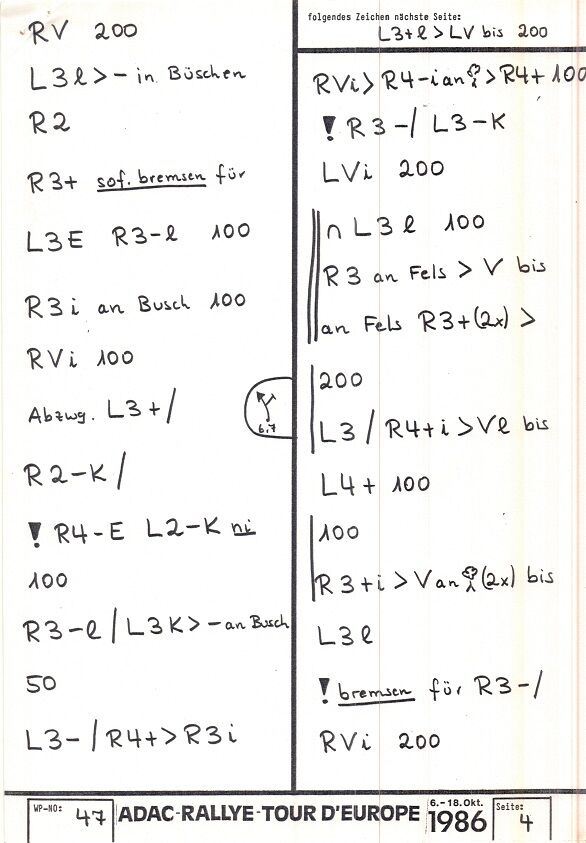 RV 200
L3l > - in Büschen
R2
R3+ sof. bremsen für
L3E R3-l 100
R3i an Busch 100
RVi 100
Abzwg. L3+/
6,7
R2-K/
! R4-E L2-K ni
100
R3-l / L3K > - an Busch
50
L3- / R4+ > R3i
folgendes Zeichen nächste Seite:
L3+l > LV bis 200
RVi > R4-i an > R4+ 100
! R3-/ L3-K
LVi 200
∩ L3l 100
R3 an Fels > V bis
an Fels R3+(2x) >
200
L3 / R4+i > Vl bis
L4+ 100
100
R3+i > V an (2x) bis
L3l
! bremsen für R3-/
RVi 200
WP-NO: 47
ADAC-RALLYE-TOUR D'EUROPE
6.-18.Okt.
1986
Seite:
4